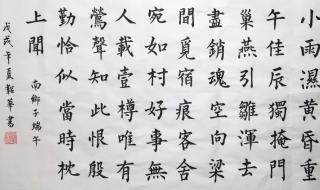 小雨濕黃昏重
午佳辰獨掩門
巢燕引雛渾去
盡銷魂空向梁
間覓宿痕客舍
宛如村好事無
人載壹樽唯有
鶯聲知此恨殷
勤恰似當時枕
上聞
南鄉子端午
戊戌年夏華書